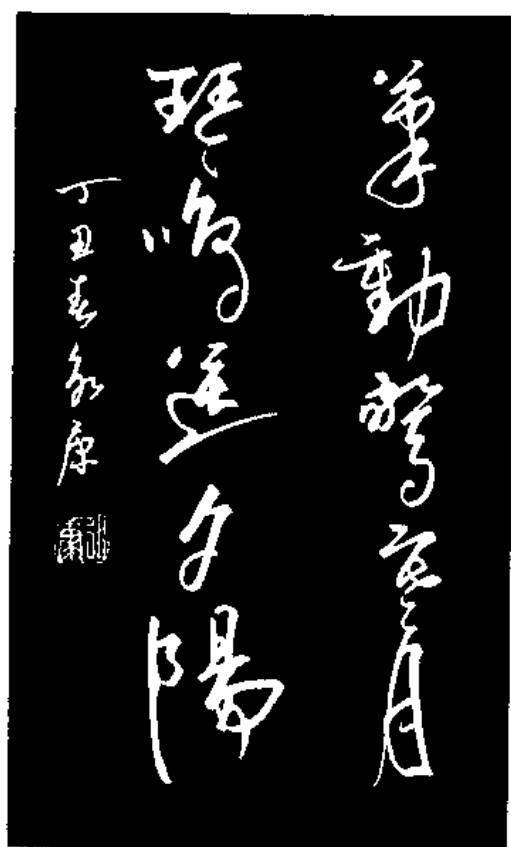 筆動驚寒月
琴鳴送夕陽
丁丑春永康